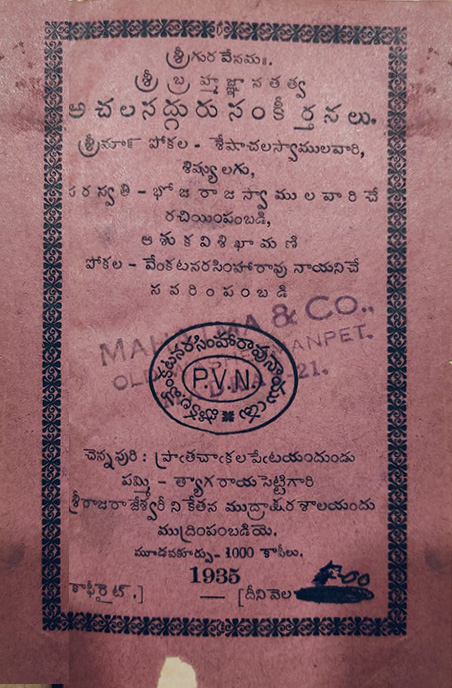 శ్రీగురవేనమః.
శ్రీ బ్రహ్మజ్ఞానతత్వ
అచలసద్గురుసంకీర్తనలు.
శ్రీమాక్ పోకల - శేషాచలస్వాములవారి,
శిష్యులగు,
సరస్వతి - భోజరాజస్వాములవారిచే
రచియింపంబడి,
ఆశుకవిశిఖామణి
పోకల - వేంకటనరసింహారావు నాయనిచే
సవరింపంబడి
& CO.,
P.V.N.
చెన్నపురి: ప్రాతచాకలపేటయందుండు
పమ్మి - త్యాగరాయసెట్టిగారి
శ్రీరాజరాజేశ్వరీ నికేతన ముద్రాక్షరశాలయందు
ముద్రింపంబడియె.
మూడవకూర్పు - 1000 కాపీలు.
1935
కాఫీరైట్.] — [దీనివెల